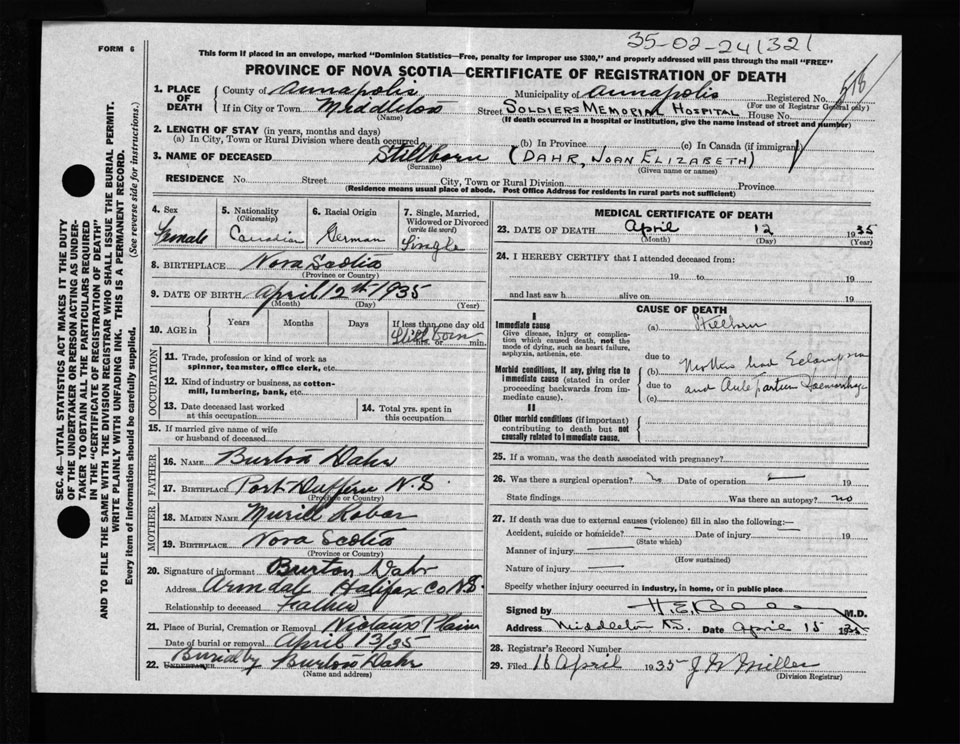 35-02-241321
FORM 6
This form if placed in an envelope, marked "Dominion Statistics—Free, penalty for improper use $300," and properly addressed will pass through the mail "FREE"
PROVINCE OF NOVA SCOTIA—CERTIFICATE OF REGISTRATION OF DEATH
1. PLACE OF DEATH
County of Annapolis Municipality of Annapolis Registered No. 516
(For use of Registrar General only)
If in City or Town Middleton Street SOLDIERS MEMORIAL HOSPITAL House No.
(Name) (If death occurred in a hospital or institution, give the name instead of street and number)
2. LENGTH OF STAY (in years, months and days)
(a) In City, Town or Rural Division where death occurred (b) In Province (c) In Canada (if immigrant)
3. NAME OF DECEASED Stillborn (DAHR, JOAN ELIZABETH)
(Surname) (Given name or names)
RESIDENCE No. Street City, Town or Rural Division Province
(Residence means usual place of abode. Post Office Address for residents in rural parts not sufficient)
SEC. 46—VITAL STATISTICS ACT MAKES IT THE DUTY
OF THE UNDERTAKER OR PERSON ACTING AS UNDER-
TAKER TO OBTAIN ALL THE PARTICULARS REQUIRED
IN THE "CERTIFICATE OF REGISTRATION OF DEATH"
AND TO FILE THE SAME WITH THE DIVISION REGISTRAR WHO SHALL ISSUE THE BURIAL PERMIT.
WRITE PLAINLY WITH UNFADING INK. THIS IS A PERMANENT RECORD.
Every item of information should be carefully supplied. (See reverse side for instructions.)
4. Sex Female
5. Nationality (Citizenship) Canadian
6. Racial Origin German
7. Single, Married, Widowed or Divorced (write the word) Single
8. BIRTHPLACE Nova Scotia
(Province or Country)
9. DATE OF BIRTH April 12th 1935
(Month) (Day) (Year)
10. AGE in Years Months Days If less than one day old
Still born hrs. or min.
OCCUPATION
11. Trade, profession or kind of work as
spinner, teamster, office clerk, etc.
12. Kind of industry or business, as cotton-
mill, lumbering, bank, etc.
13. Date deceased last worked
at this occupation
14. Total yrs. spent in
this occupation
15. If married give name of wife
or husband of deceased
FATHER
16. NAME Burton Dahr
17. BIRTHPLACE Port Dufferin N.S.
(Province or Country)
MOTHER
18. MAIDEN NAME Muriel
19. BIRTHPLACE Nova Scotia
(Province or Country)
20. Signature of informant Burton Dahr
Address Armdale Halifax Co N.S.
Relationship to deceased Father
21. Place of Burial, Cremation or Removal Nictaux Plains
Date of burial or removal April 13/35
Buried by Burton Dahr
22. UNDERTAKER
(Name and address)
MEDICAL CERTIFICATE OF DEATH
23. DATE OF DEATH April 12 1935
(Month) (Day) (Year)
24. I HEREBY CERTIFY that I attended deceased from:
19 to 19
and last saw h alive on 19
CAUSE OF DEATH
I
Immediate cause
Give disease, injury or complica-
tion which caused death, not the
mode of dying, such as heart failure,
asphyxia, asthenia, etc.
(a) Stillborn
due to
Morbid conditions, if any, giving rise to
immediate cause (stated in order
proceeding backwards from im-
mediate cause).
(b) Mother had Eclampsia
due to
and Ante partum Haemorrhage
(c)
II
Other morbid conditions (if important)
contributing to death but not
causally related to immediate cause.
25. If a woman, was the death associated with pregnancy?
26. Was there a surgical operation? no Date of operation 19
State findings Was there an autopsy? no
27. If death was due to external causes (violence) fill in also the following:—
Accident, suicide or homicide? Date of injury 19
(State which)
Manner of injury
(How sustained)
Nature of injury
Specify whether injury occurred in industry, in home, or in public place
Signed by M.D.
Address Middleton N.S. Date April 15 1935
28. Registrar's Record Number
29. Filed 16 April 1935 Miller
(Division Registrar)